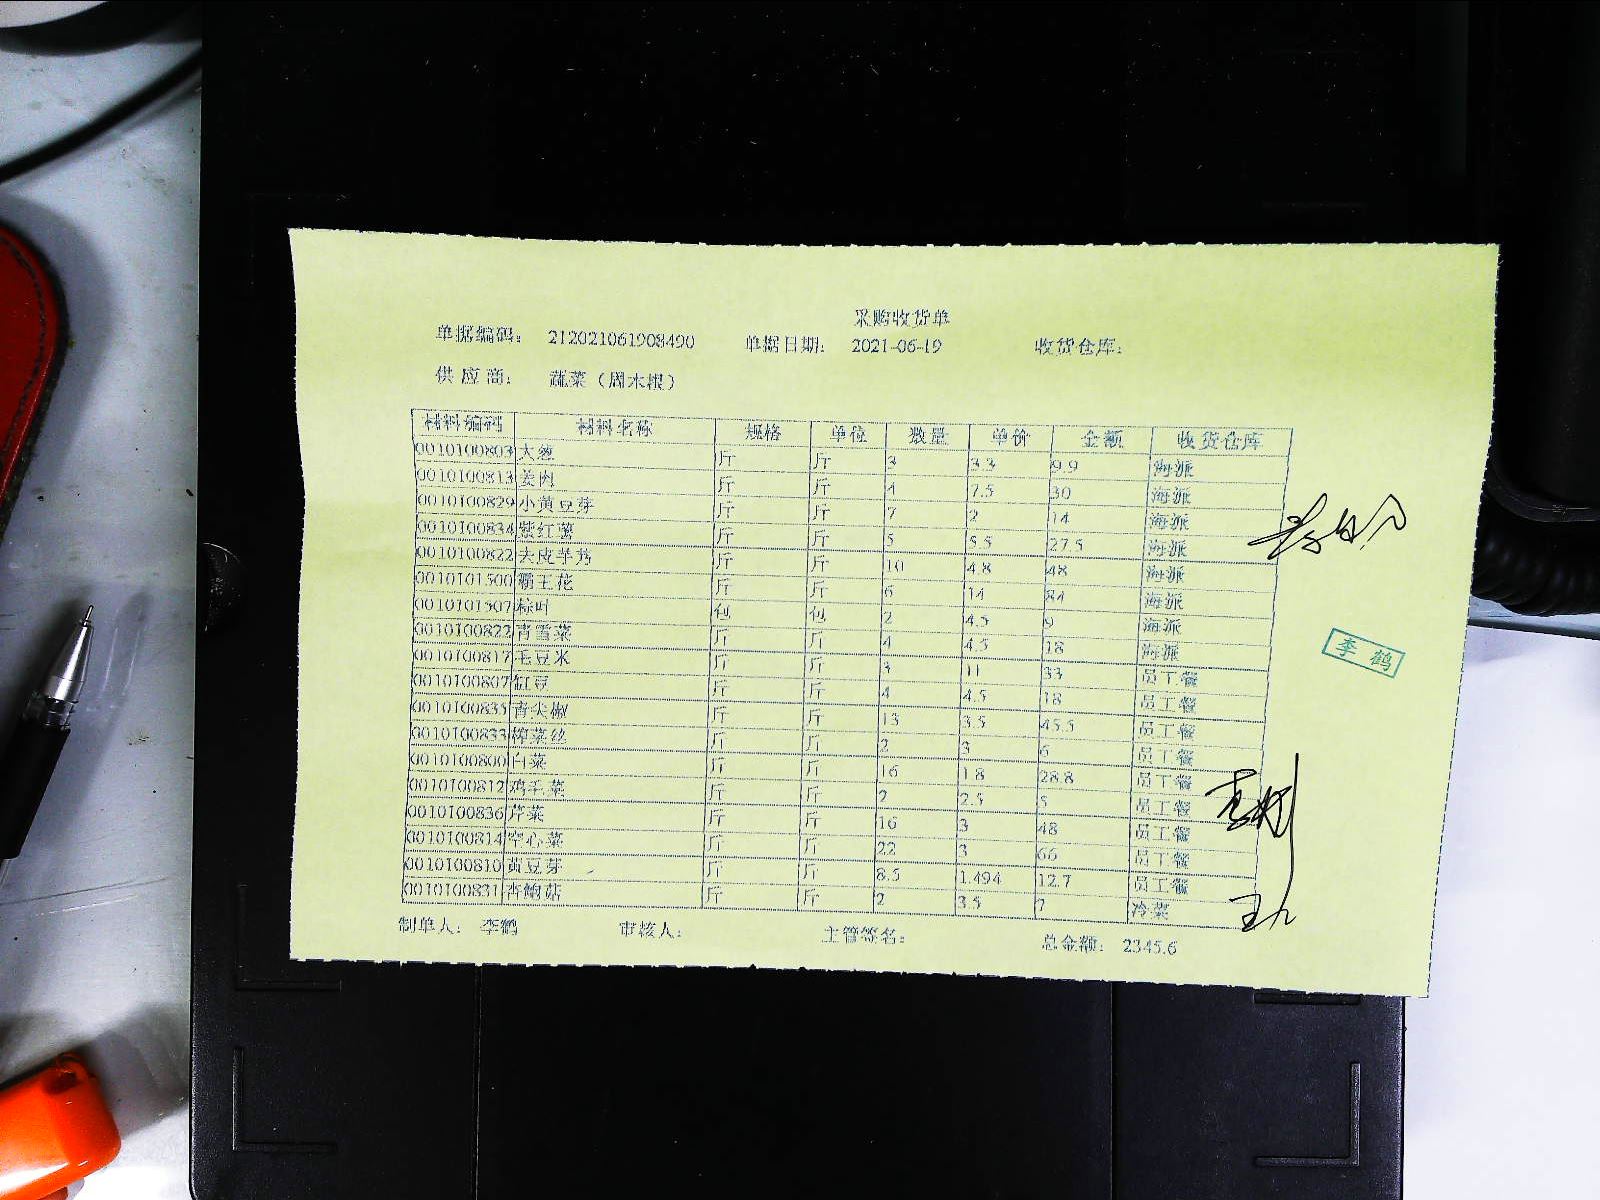 采购收货单
单据编码： 212021061908490 单据日期： 2021-06-19 收货仓库：
供应商： 蔬菜（周木根）
材料编码 材料名称 规格 单位 数量 单价 金额 收货仓库
0010100803 大葱 斤 斤 3 3.3 9.9 海派
0010100813 姜肉 斤 斤 4 7.5 30 海派
0010100829 小黄豆芽 斤 斤 7 2 14 海派
0010100834 紫红薯 斤 斤 5 5.5 27.5 海派
0010100822 去皮芋艿 斤 斤 10 4.8 48 海派
0010101500 霸王花 斤 斤 6 14 84 海派
0010101507 粽叶 包 包 2 4.5 9 海派
0010100822 青雪菜 斤 斤 4 4.5 18 海派
0010100817 毛豆米 斤 斤 3 11 33 员工餐
0010100807 缸豆 斤 斤 4 4.5 18 员工餐
0010100835 青尖椒 斤 斤 13 3.5 45.5 员工餐
0010100833 榨菜丝 斤 斤 2 3 6 员工餐
0010100800 白菜 斤 斤 16 1.8 28.8 员工餐
0010100812 鸡毛菜 斤 斤 2 2.5 5 员工餐
0010100836 芹菜 斤 斤 16 3 48 员工餐
0010100814 空心菜 斤 斤 22 3 66 员工餐
0010100810 黄豆芽 斤 斤 8.5 1.494 12.7 员工餐
0010100831 杏鲍菇 斤 斤 2 3.5 7 冷菜
制单人： 李鹤 审核人： 主管签名： 总金额： 2345.6
李鹤